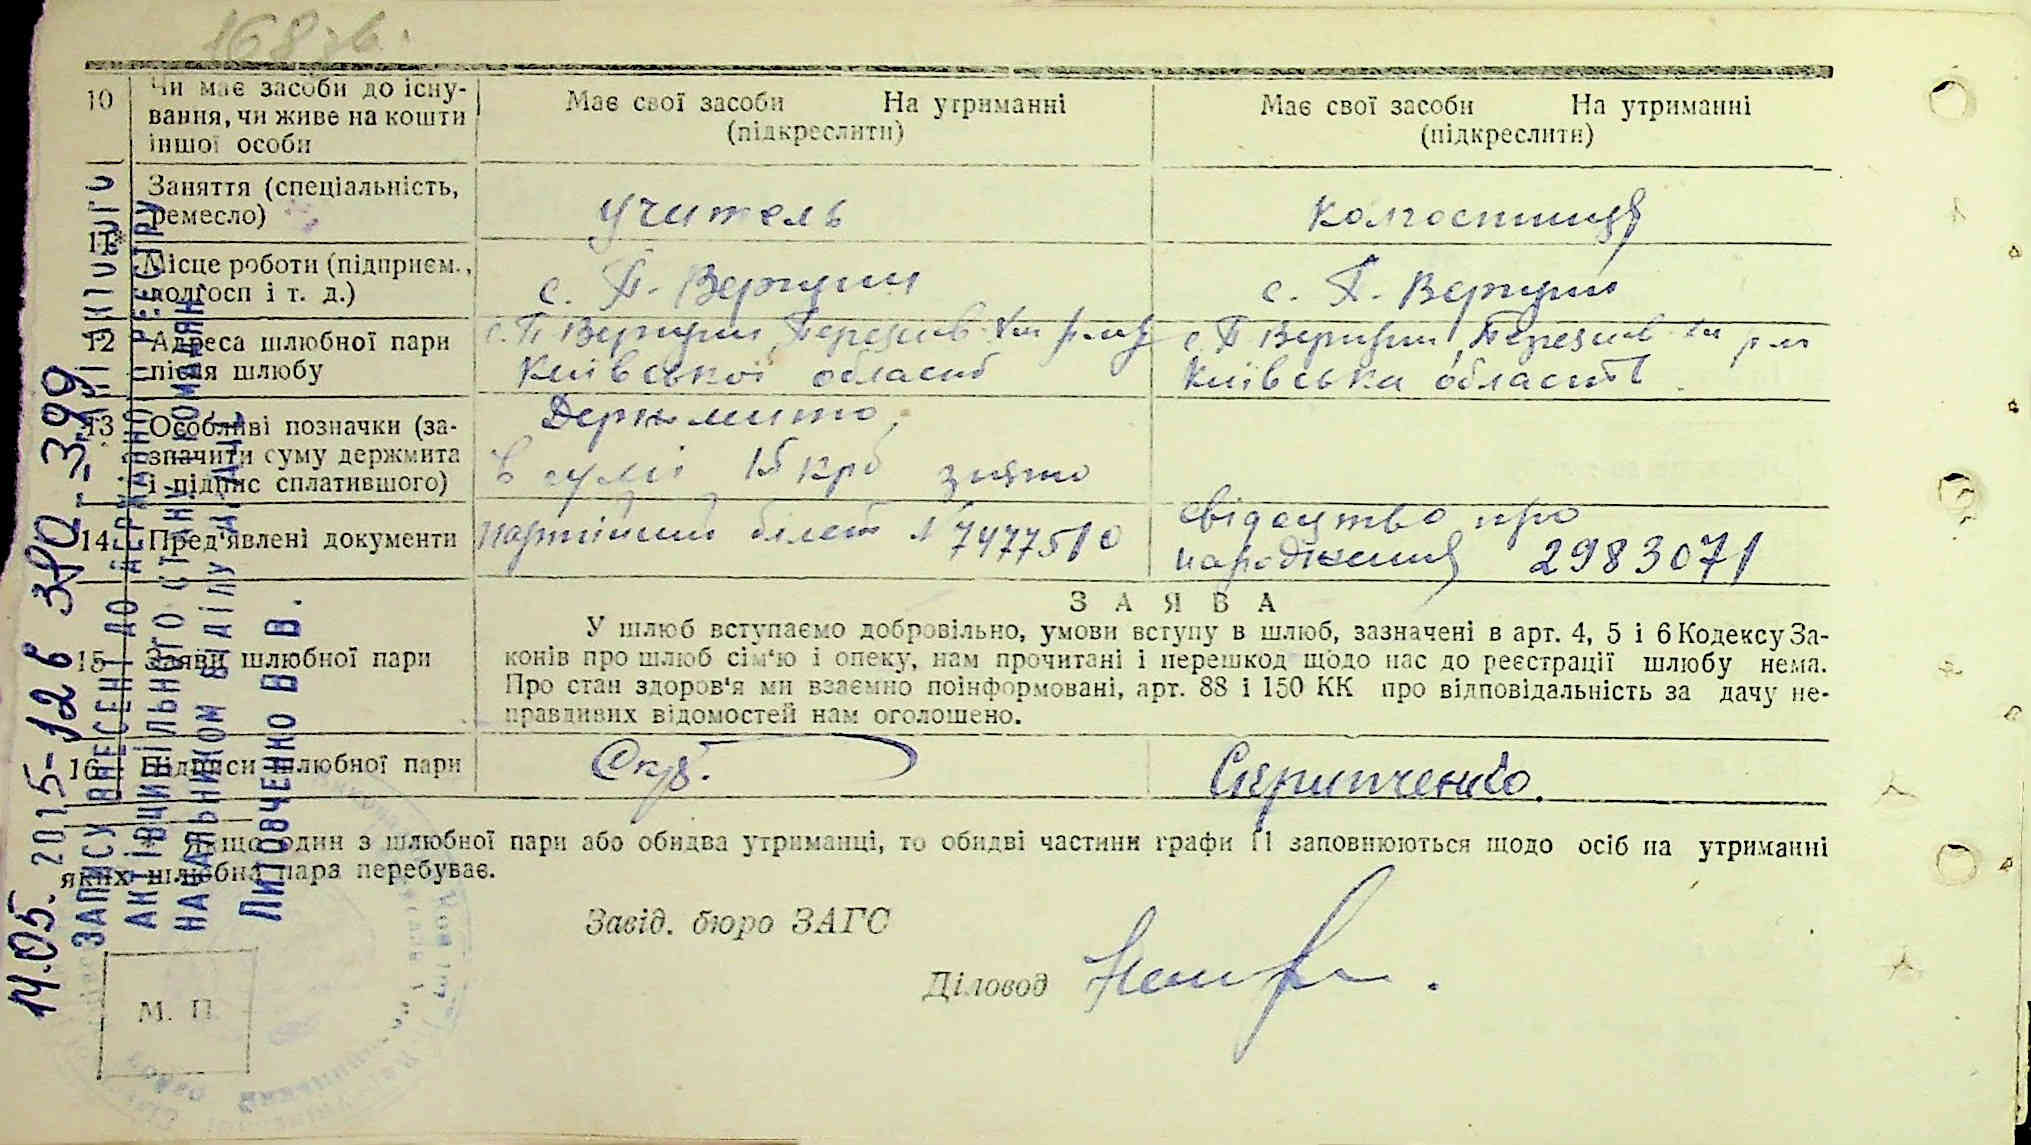 168 зв.
10 Чи має засоби до існу-
вання, чи живе на кошти
іншої особи
Має свої засоби На утриманні
(підкреслити)
Має свої засоби На утриманні
(підкреслити)
11* Заняття (спеціальність,
ремесло)
учитель
колгоспниця
Місце роботи (підприєм.,
колгосп і т. д.)
с. П. Вергуни
с. П. Вергуни
12 Адреса шлюбної пари
після шлюбу
с. П Вергуни
Київської області
с. П Вергуни
Київська області
13 Особливі позначки (за-
значити суму держмита
і підпис сплатившого)
Держмито
в сумі 15 крб знято
14 Пред'явлені документи
партійний білет № 7477510
свідоцтво про
народження 2983071
ЗАЯВА
15 Заяви шлюбної пари
У шлюб вступаємо добровільно, умови вступу в шлюб, зазначені в арт. 4, 5 і 6 Кодексу За-
конів про шлюб сім'ю і опеку, нам прочитані і перешкод щодо нас до реєстрації шлюбу нема.
Про стан здоров'я ми взаємно поінформовані, арт. 88 і 150 КК про відповідальність за дачу не-
правдивих відомостей нам оголошено.
16 Підписи шлюбної пари
Скрипченко.
* Якщо один з шлюбної пари або обидва утриманці, то обидві частини графи 11 заповнюються щодо осіб на утриманні
яких шлюбна пара перебуває.
Завід. бюро ЗАГС
Діловод
М. П.
14.05.2015-126 390-399
ЗАПИСУ ВНЕСЕНІ ДО ДЕРЖАВНОГО РЕЄСТРУ
АКТІВ ЦИВІЛЬНОГО СТАНУ ГРОМАДЯН
НАЧАЛЬНИКОМ ВІДДІЛУ ДРАЦС
ЛИТОВЧЕНКО В. В.